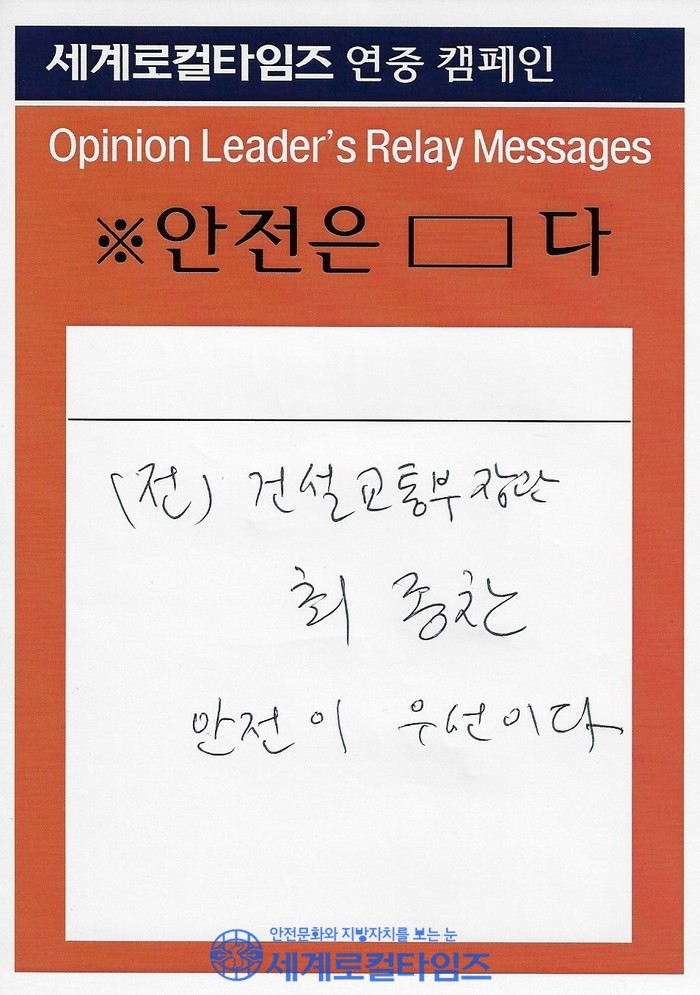 세계로컬타임즈 연중 캠페인
Opinion Leader's Relay Messages
※안전은 □ 다
(전) 건설교통부 장관
최 종찬
안전이 우선이다
안전문화와 지방자치를 보는 눈
세계로컬타임즈